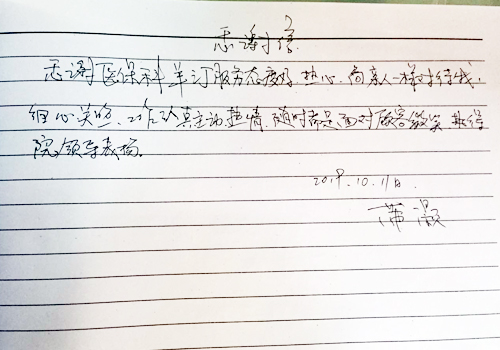 感谢信
感谢医保科羊汀服务态度好、热心、向亲人一样对待我,
细心关照、工作认真主动热情、随时都是面对顾客微笑、
院领导表扬。
2019.10.11日.